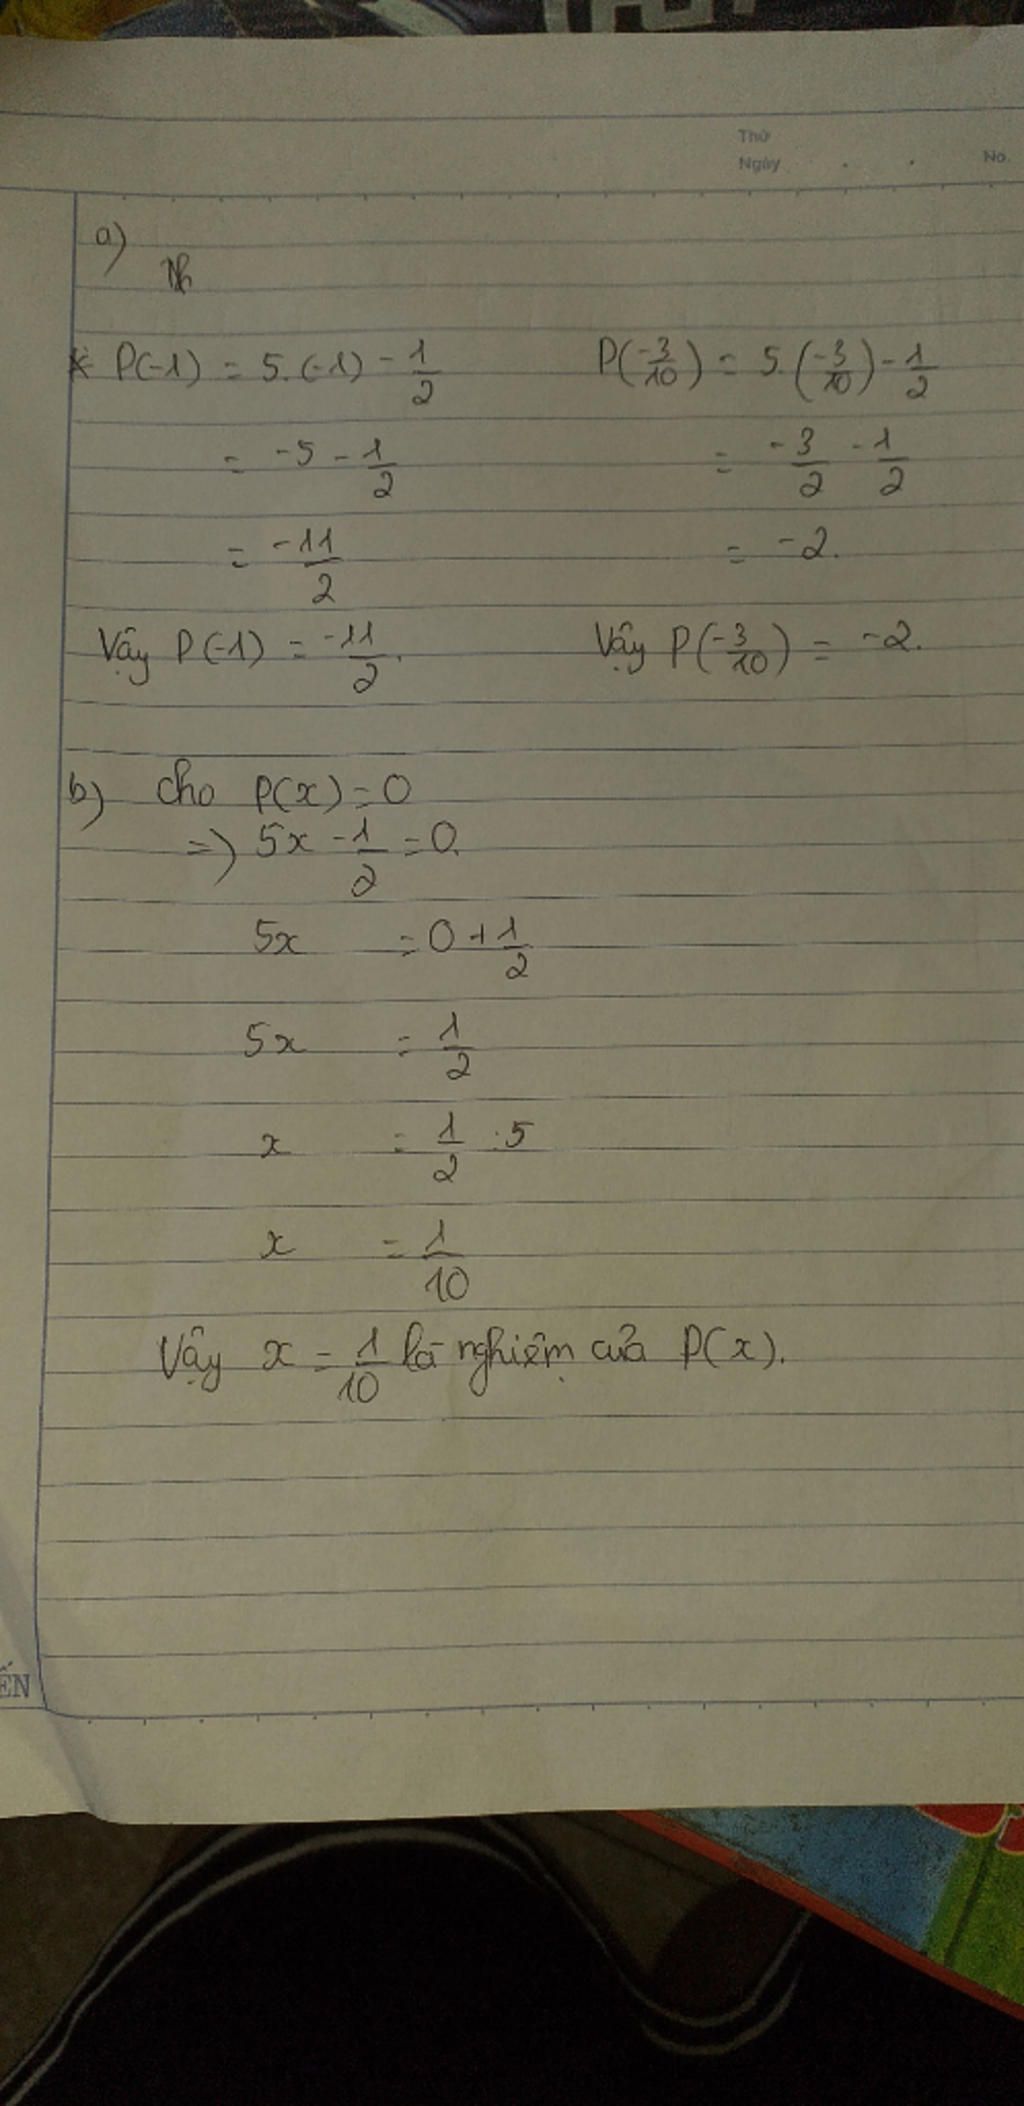 Thứ
Ngày . . No.
a)
Nh
* P(-1) = 5.(-1) - 1/2
= -5 - 1/2
= -11/2
Vậy P(-1) = -11/2.
P(-3/10) = 5.(-3/10) - 1/2
= -3/2 - 1/2
= -2.
Vậy P(-3/10) = -2.
b) cho P(x) = 0
=> 5x - 1/2 = 0.
5x = 0 + 1/2
5x = 1/2
x = 1/2 : 5
x = 1/10
Vậy x = 1/10 là nghiệm của P(x).
ẾN